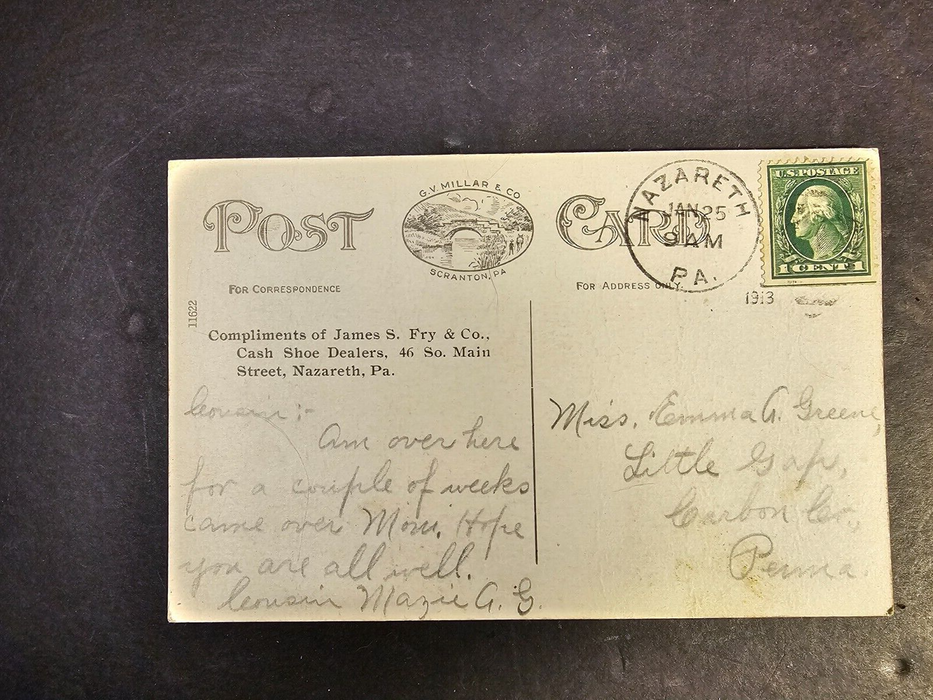 POST CARD
G.V. MILLAR & CO
SCRANTON, PA
NAZARETH
JAN 25
9 AM
PA.
1913
U.S. POSTAGE
1 CENT 1
FOR CORRESPONDENCE
FOR ADDRESS ONLY.
11622
Compliments of James S. Fry & Co.,
Cash Shoe Dealers, 46 So. Main
Street, Nazareth, Pa.
Cousin:-
Am over here
for a couple of weeks
came over Mon. Hope
you are all well.
Cousin Mazie A. G.
Miss. Emma A. Greene,
Little Gap,
Carbon Co.,
Penna.